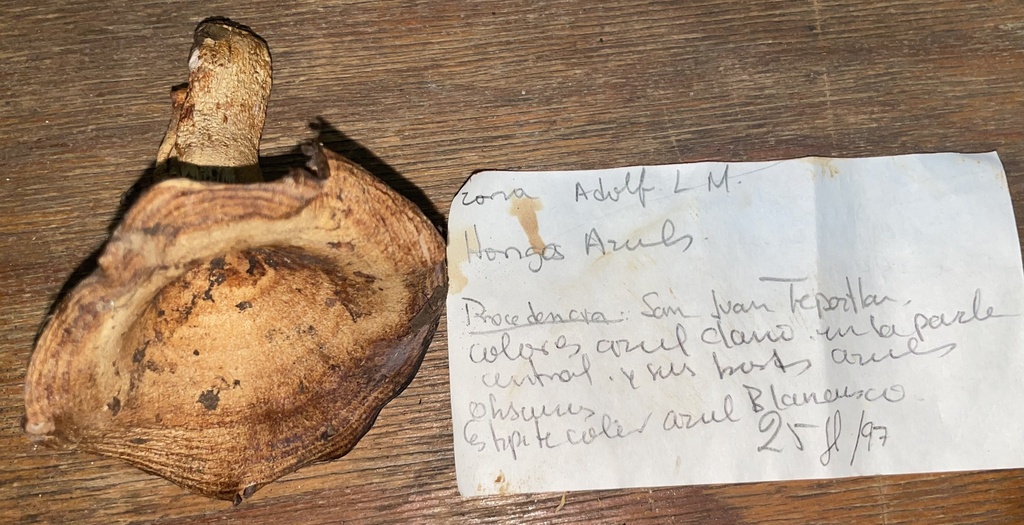 zona Adolf L M.
Hongos Azules.
Procedencia: San Juan
colores azul claro en la parte
central. y sus bords azules
obscuros
Estipite color azul Blancusco.
25 /97